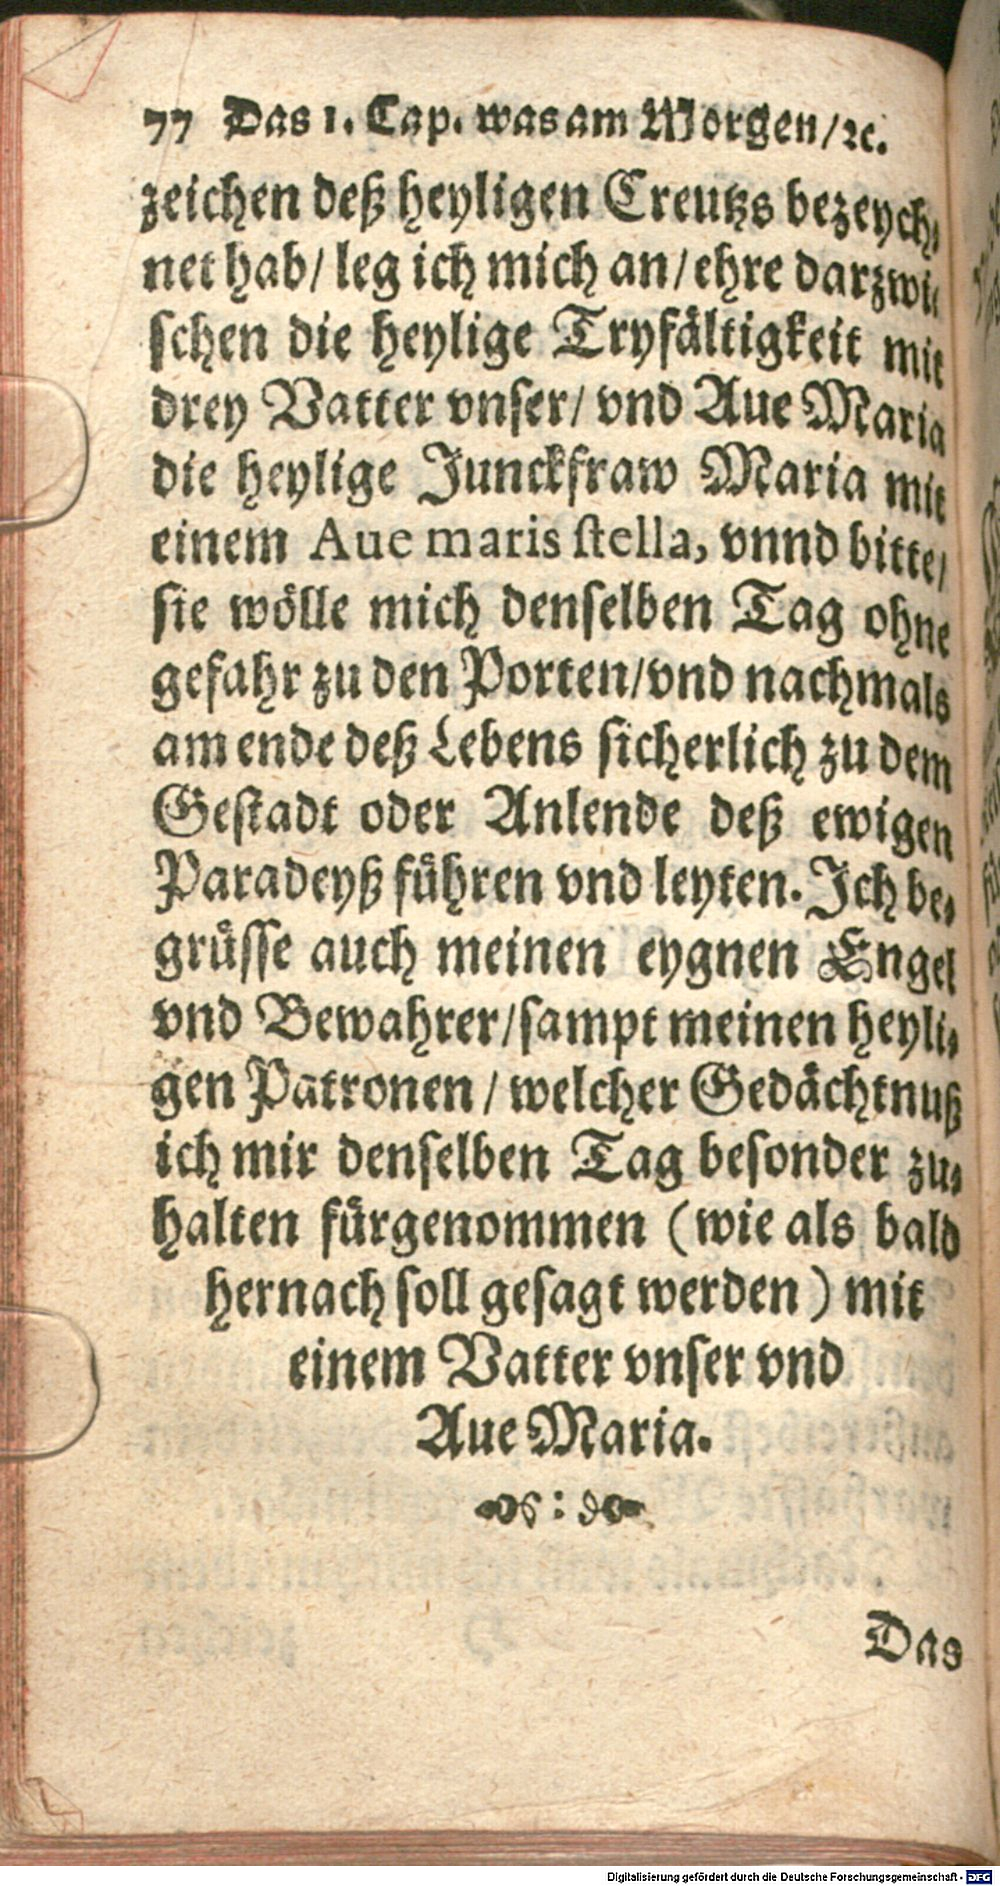 77 Das 1. Cap. was am Morgen/ ꝛc.
zeichen deß heyligen Creutzs bezeych⸗
net hab/ leg ich mich an/ ehre darzwi⸗
schen die heylige Tryfältigkeit mit
drey Vatter vnser/ vnd Aue Maria
die heylige Junckfraw Maria mit
einem Aue maris stella, vnnd bitte/
sie wölle mich denselben Tag ohne
gefahr zu den Porten/ vnd nachmals
am ende deß Lebens sicherlich zu dem
Gestadt oder Anlende deß ewigen
Paradeyß führen vnd leyten. Ich be⸗
grüsse auch meinen eygnen Engel
vnd Bewahrer/ sampt meinen heyli⸗
gen Patronen/ welcher Gedächtnuß
ich mir denselben Tag besonder zu⸗
halten fürgenommen (wie als bald
hernach soll gesagt werden) mit
einem Vatter vnser vnd
Aue Maria.
Das
Digitalisierung gefördert durch die Deutsche Forschungsgemeinschaft - DFG